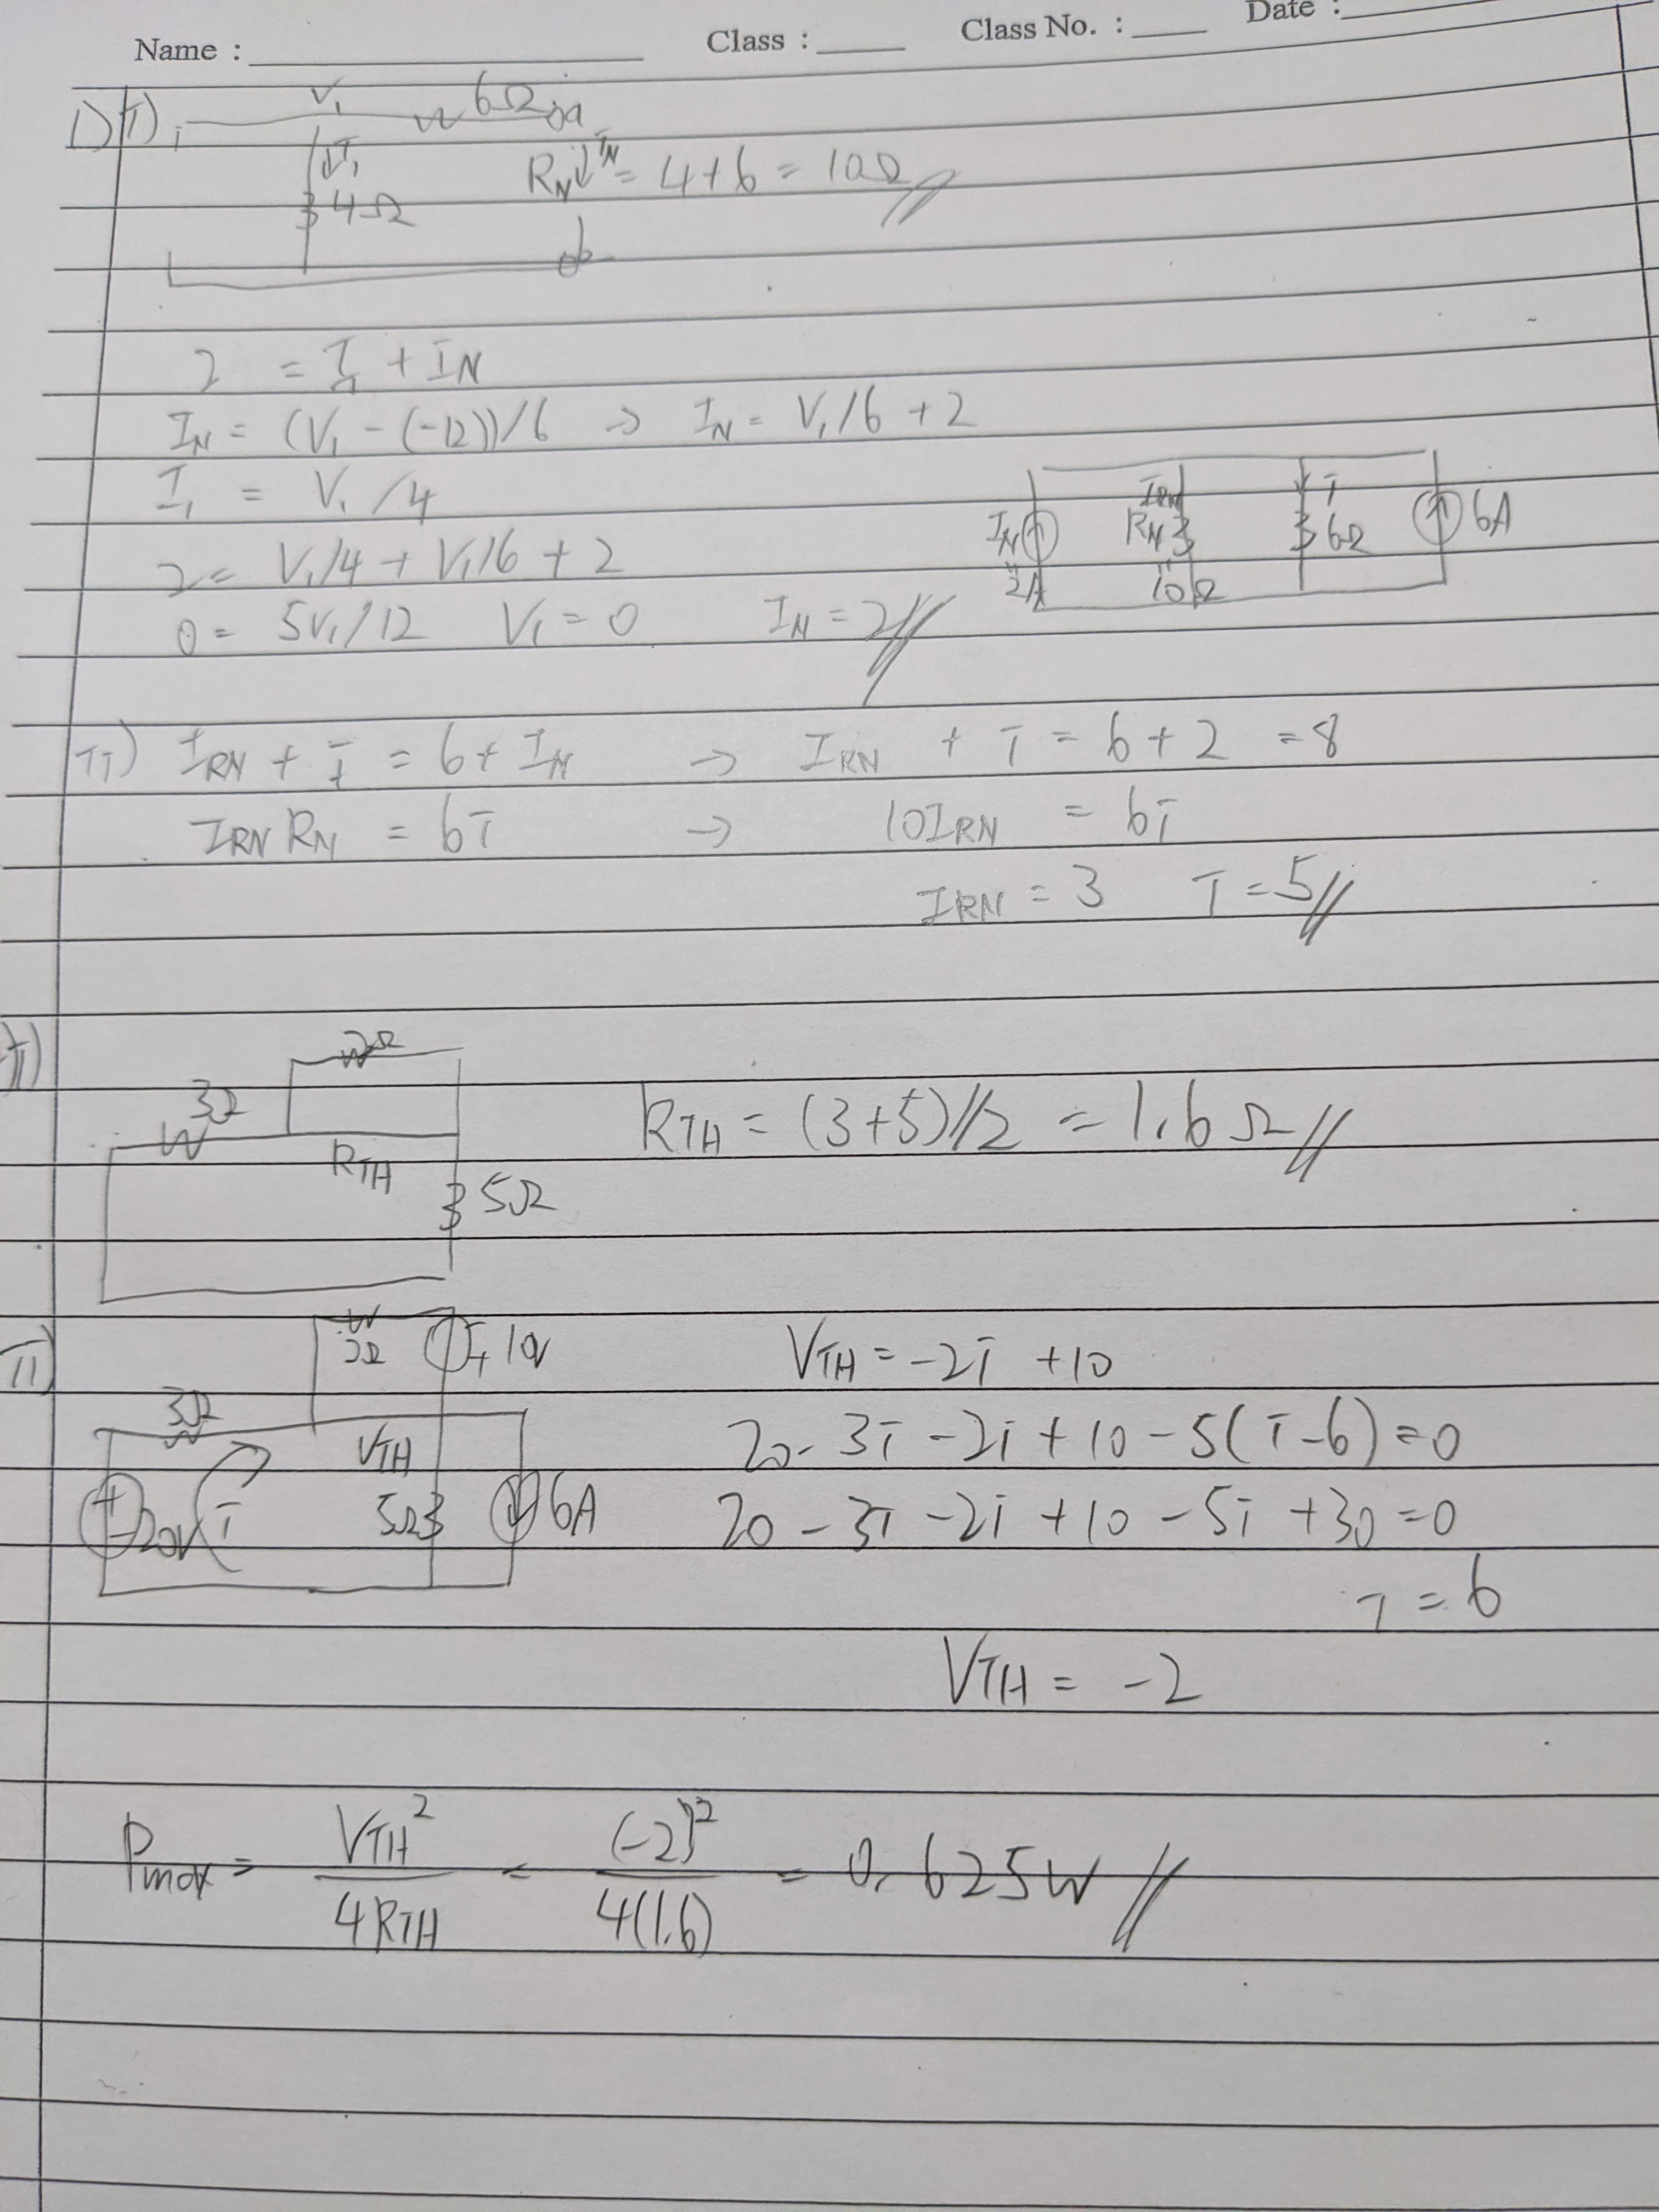 Name : Class : Class No. : Date :
1) I) V₁ 6Ω a
I₁ I_N
4Ω R_N = 4+6 = 10Ω
b
2 = I₁ + I_N
I_N = (V₁ - (-12))/6 → I_N = V₁/6 + 2
I₁ = V₁/4
I_N 2A I_RN R_N 10Ω I 6Ω 6A
2 = V₁/4 + V₁/6 + 2
0 = 5V₁/12 V₁ = 0 I_N = 2
II) I_RN + I = 6 + I_N → I_RN + I = 6 + 2 = 8
I_RN R_N = 6I → 10I_RN = 6I
I_RN = 3 I = 5
I)
2Ω
3Ω
R_TH
5Ω
R_TH = (3+5)//2 = 1.6Ω
II)
2Ω - + 10V
3Ω
V_TH
+ - 20V I 5Ω 6A
V_TH = -2I + 10
20 - 3I - 2I + 10 - 5(I-6) = 0
20 - 3I - 2I + 10 - 5I + 30 = 0
I = 6
V_TH = -2
Pmax = V_TH² / 4R_TH = (-2)² / 4(1.6) = 0.625W